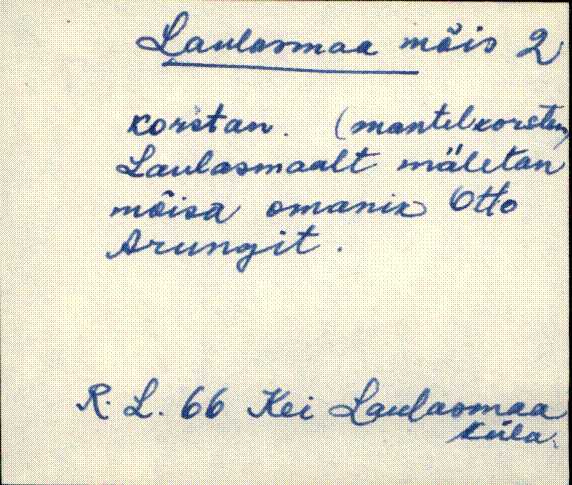 Laulasmaa mõis 2
korstan. (mantelkorsten)
Laulasmaalt mäletan
mõisa omanik Otto
Arungit.
R. L. 66 Kei Laulasmaa
küla.